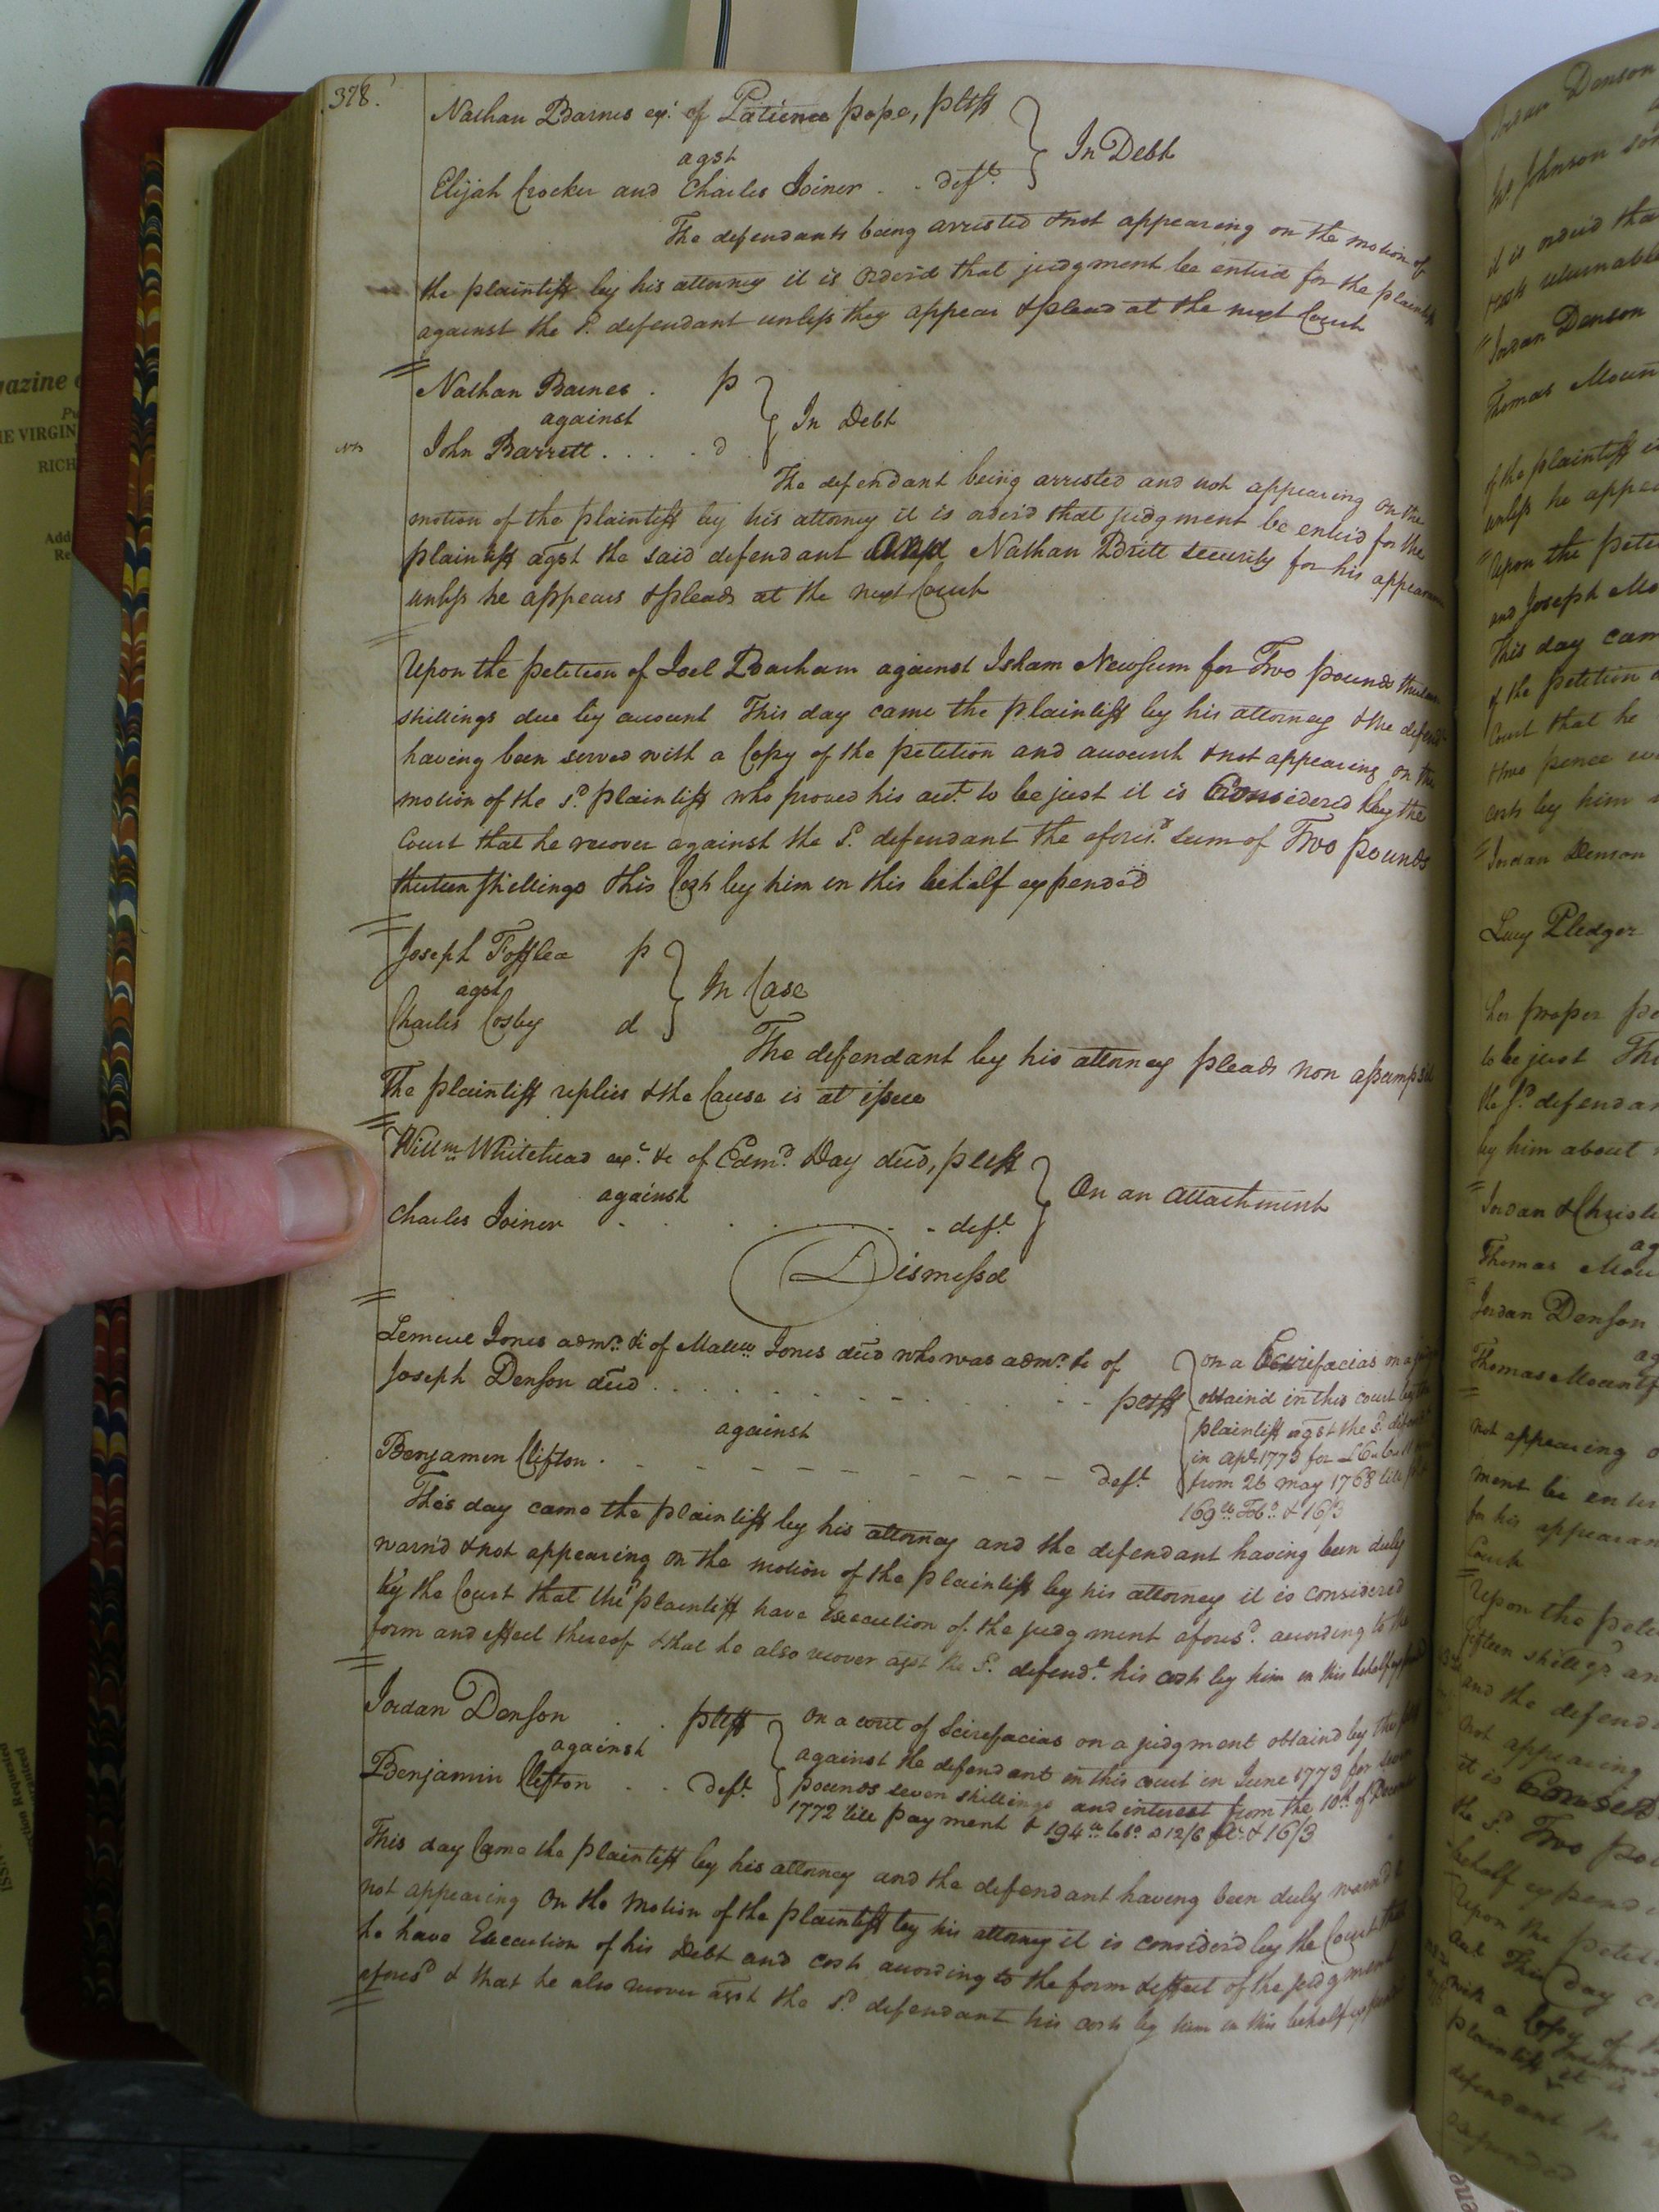 378.
Nathan Barnes exr. of Patience pope, pltff
agst
In Debt
Elijah Crocker and Charles Joiner . . deft.
The defendants being arrested & not appearing on the motion of
the plaintiff by his attorney it is orderd that judgment be enterd for the plaintiff
against the sd. defendant unless they appear & plead at the next Court
Nathan Barnes . p
against
In Debt
John Barrett . . . . d
The defendant being arrested and not appearing on the
motion of the plaintiff by his attorney it is orderd that judgment be enterd for the
plaintiff agst the said defendant and Nathan Britt security for his appearance
unless he appears & pleads at the next Court
Upon the petition of Joel Barham against Isham Newsum for Two pounds thirteen
shillings due by account This day came the plaintiff by his attorney & the defendt
having been served with a Copy of the petition and account & not appearing on the
motion of the sd. plaintiff who proved his act. to be just it is Considered by the
Court that he recover against the sd. defendant the aforesd. sum of Two pounds
thirteen shillings & his Cost by him in this behalf expended
Joseph Tofflea p
agst
In Case
Charles Cosby d
The defendant by his attorney pleads non assumpsit
The plaintiff replies & the Cause is at issue
Willm. Whitehead exr. &c of Edmd. Day decd, pltff
against
On an attachment
Charles Joiner . . . . . deft.
Dismissd
Lemuel Jones admr. &c of Mattw Jones decd who was admr. &c of
Joseph Denson decd . . . . pltff
against
Benjamin Clifton . - - - - deft.
on a Scirefacias on a
obtaind in this court by the
plaintiff agst the sd. defendt
in apl. 1773 for
from 26 may 1768 till
169 lb Tobo. & 16/3
This day came the plaintiff by his attorney and the defendant having been duly
warn'd & not appearing on the motion of the plaintiff by his attorney it is considered
by the Court that the plaintiff have Execution of the judgment aforesd. according to the
form and effect thereof & that he also recover agst the sd. defendt. his costs by him in this behalf expended
Jordan Denson . . pltff
against
Benjamin Clifton . . deft.
On a writ of Scirefacias on a judgment obtaind by the
against the defendant in this court in June 1773 for seven
pounds seven shillings and interest from the 10th of Decem
1772 till payment & 194 lb to. a 12/6 & 16/3
This day Came the plaintiff by his attorney and the defendant having been duly warnd &
not appearing On the Motion of the plaintiff by his attorney it is considerd by the Court that
he have Execution of his Debt and costs according to the form & effect of the judgment
aforesd & that he also recover agst the sd. defendant his costs by him in this behalf expended
Jordan Denson
Jno. Johnson
it is orderd tha
costs returnable
Jordan Denson
Thomas Moun
of the plaintiff
unless he appea
Upon the peti
and Joseph Mo
This day cam
of the petition
Court that he
three pence
costs by him
Jordan Denson
Lucy Pledger
her proper pe
to be just Thi
the sd. defendan
by him about
Jordan & Christ
ag
Thomas Mou
Jordan Denson
ag
Thomas Mount
not appearing o
ment be enter
for his appearan
Court
Upon the peti
fifteen shillgs. an
and the defend
not appearing
it is Consid
the sd. Two po
behalf expend
Upon the petit
act This day c
with a Copy of
plaintiff it is
defendant the
expended
azine
VIRGIN
RICH
Add
Re